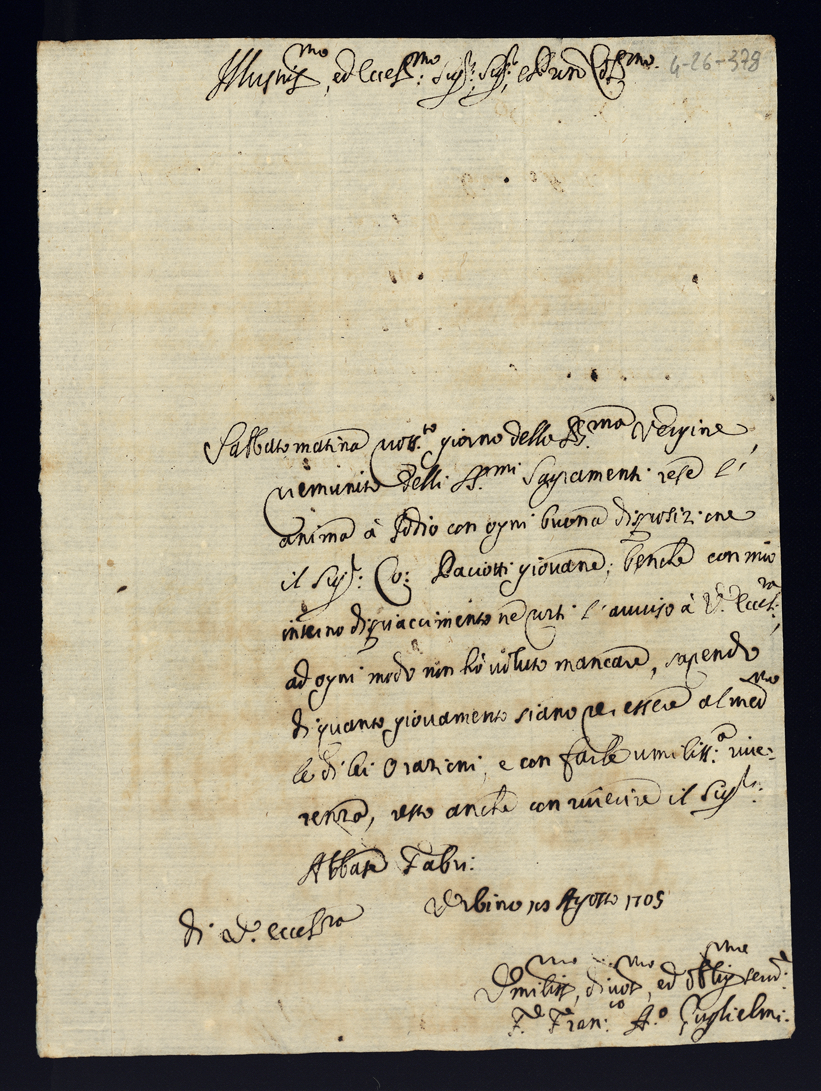 Illustris.mo, ed Eccel.mo Sig.r Sig.r, e Prone Col.mo
4-26-378
Sabbato matina giorno della SS.ma Vergine,
premunito delli SS.mi Sagramenti rese l'
anima à Iddio con ogni buona disposizione
il Sig.r Co: Paciotti giovane; benche con mio
interno dispiaccimento ne porti l'avviso à V. Ecc.za,
ad ogni modo non hò voluto mancare, sapendo
di quanto giovamento siano per essere al med.mo
le di lei Orazioni, e con farle umiliss.a rive-
renza, resto anche con riverire il Sig.r
Abbate Fabri:
di V. Eccel.za Urbino Agosto 1705
Umiliss.mo, divot.mo, ed oblig.mo serv.
F. Fran.co A.o Guglielmi.